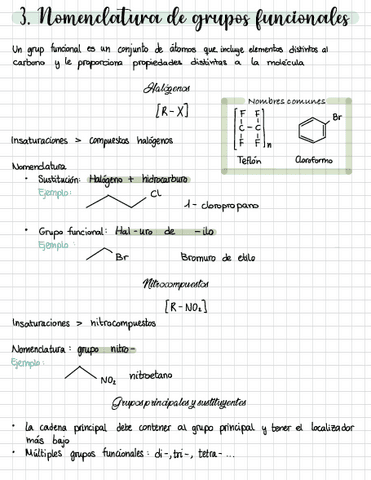 3. Nomenclatura de grupos funcionales
Un grup funcional es un conjunto de átomos que incluye elementos distintos al
carbono y le proporciona propiedades distintas a la molécula
Halógenos
[R-X]
Nombres comunes
F F
C - C
F F
n
Br
Teflón
Cloroformo
Insaturaciones > compuestos halógenos
Nomenclatura
• Sustitución: Halógeno + hidrocarburo
Ejemplo:
CL
1-cloropropano
• Grupo funcional: Hal-uro de -ilo
Ejemplo:
Br
Bromuro de etilo
Nitrocompuestos
[R-NO₂]
Insaturaciones > nitrocompuestos
Nomenclatura: grupo nitro-
Ejemplo:
NO₂
nitroetano
Grupos principales y sustituyentes
• La cadena principal debe contener al grupo principal y tener el localizador
más bajo
• Múltiples grupos funcionales: di-, tri-, tetra-...